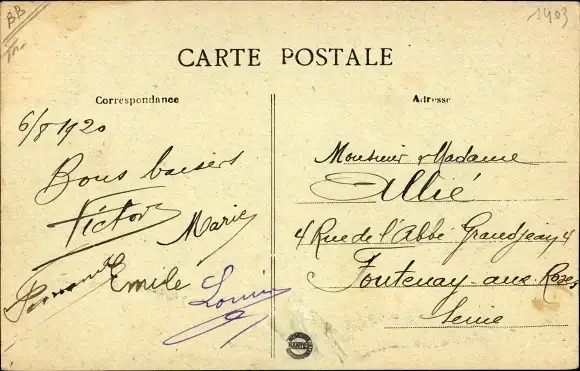 BB
1403
CARTE POSTALE
Correspondance
Adresse
6/8 1920
Bons baisers
Victor
Marie
Emile
Monsieur Madame
Allié
4 Rue de l'Abbé Grandjean 4
Fontenay-aux Roses
Seine